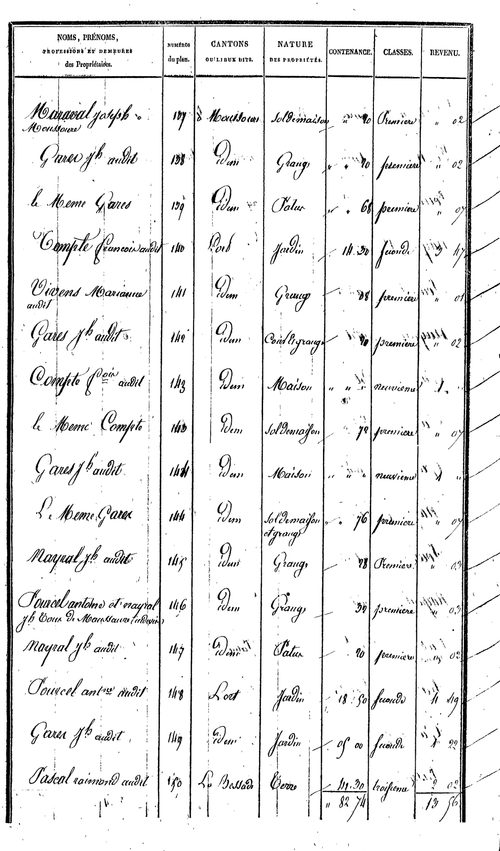 NOMS, PRÉNOMS, PROFESSIONS ET DEMEURES des Propriétaires. NUMÉROS du plan. CANTONS OU LIEUX DITS. NATURE DES PROPRIÉTÉS. CONTENANCE. CLASSES. REVENU.
Maraval joseph à Moussaure 137 à Moussaure Sol de maison " " 20 Premiere " 02
Gares jh audit 138 idem Grange " " 20 premiere " 02
le Meme Gares 139 idem Patur " " 68 premiere " 07
Compte francois audit 140 Lort Jardin 14 30 seconde 3 47
Vivens Marianne audit 141 idem Grange 08 premiere " 01
Gares jh audit 142 idem Grange 20 premiere " 02
Compte fois audit 143 idem Maison " " " neuvieme
le Meme Compte 143 idem Sol de maison 72 premiere " 07
Gares jh audit 144 idem Maison " " " neuvieme
Le Meme Gares 144 idem Sol de maison et grange " " 76 premiere " 07
Nayral jh audit 145 idem Grange 28 Premiere " 03
Pourcel antoine et nayral jh tous de Moussaure 146 idem Grange 30 premiere " 03
Nayral jh audit 147 idem Patur 20 premiere 02
Pourcel ant audit 148 Lort Jardin 18 50 seconde 4 49
Gares jh audit 149 idem Jardin 05 00 seconde 1 22
Pascal raimond audit 150 La Bessade Terre 41 30 troisieme 02
" 82 74 13 56